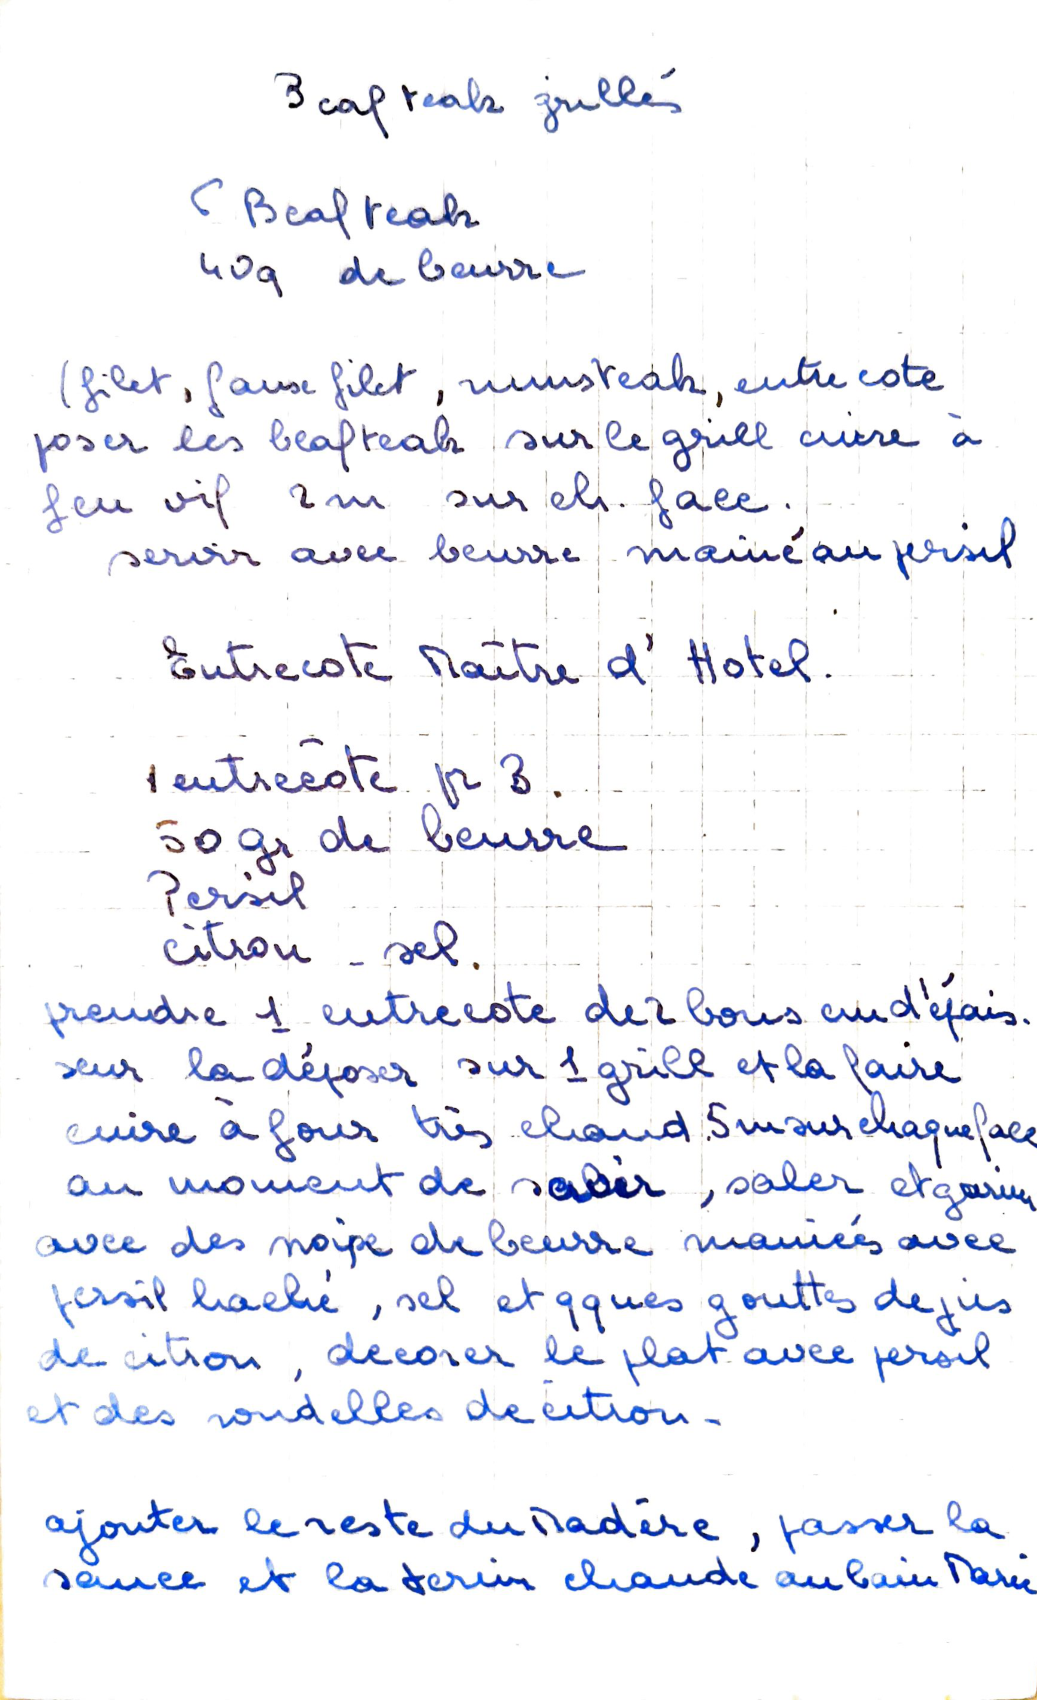 Beafteak grillés
6 Beafteak
40g de beurre
(filet, faux filet, rumsteak, entre cote
poser les beafteak sur le grill cuire à
feu vif 2m sur ch. face.
servir avec beurre manié au persil
Entrecote Maître d'Hotel.
1 entrecôte pr 3.
50 gr de beurre
Persil
citron - sel.
prendre 1 entrecote de 2 bons cm d'épais.
seur la déposer sur 1 grill et la faire
cuire à four très chaud 5m sur chaque face
au moment de , saler et garnir
avec des noix de beurre maniés avec
persil haché, sel et qques gouttes de jus
de citron, decorer le plat avec persil
et des rondelles de citron -
ajouter le reste du Madère, passer la
sauce et la tenir chaude au bain Marie